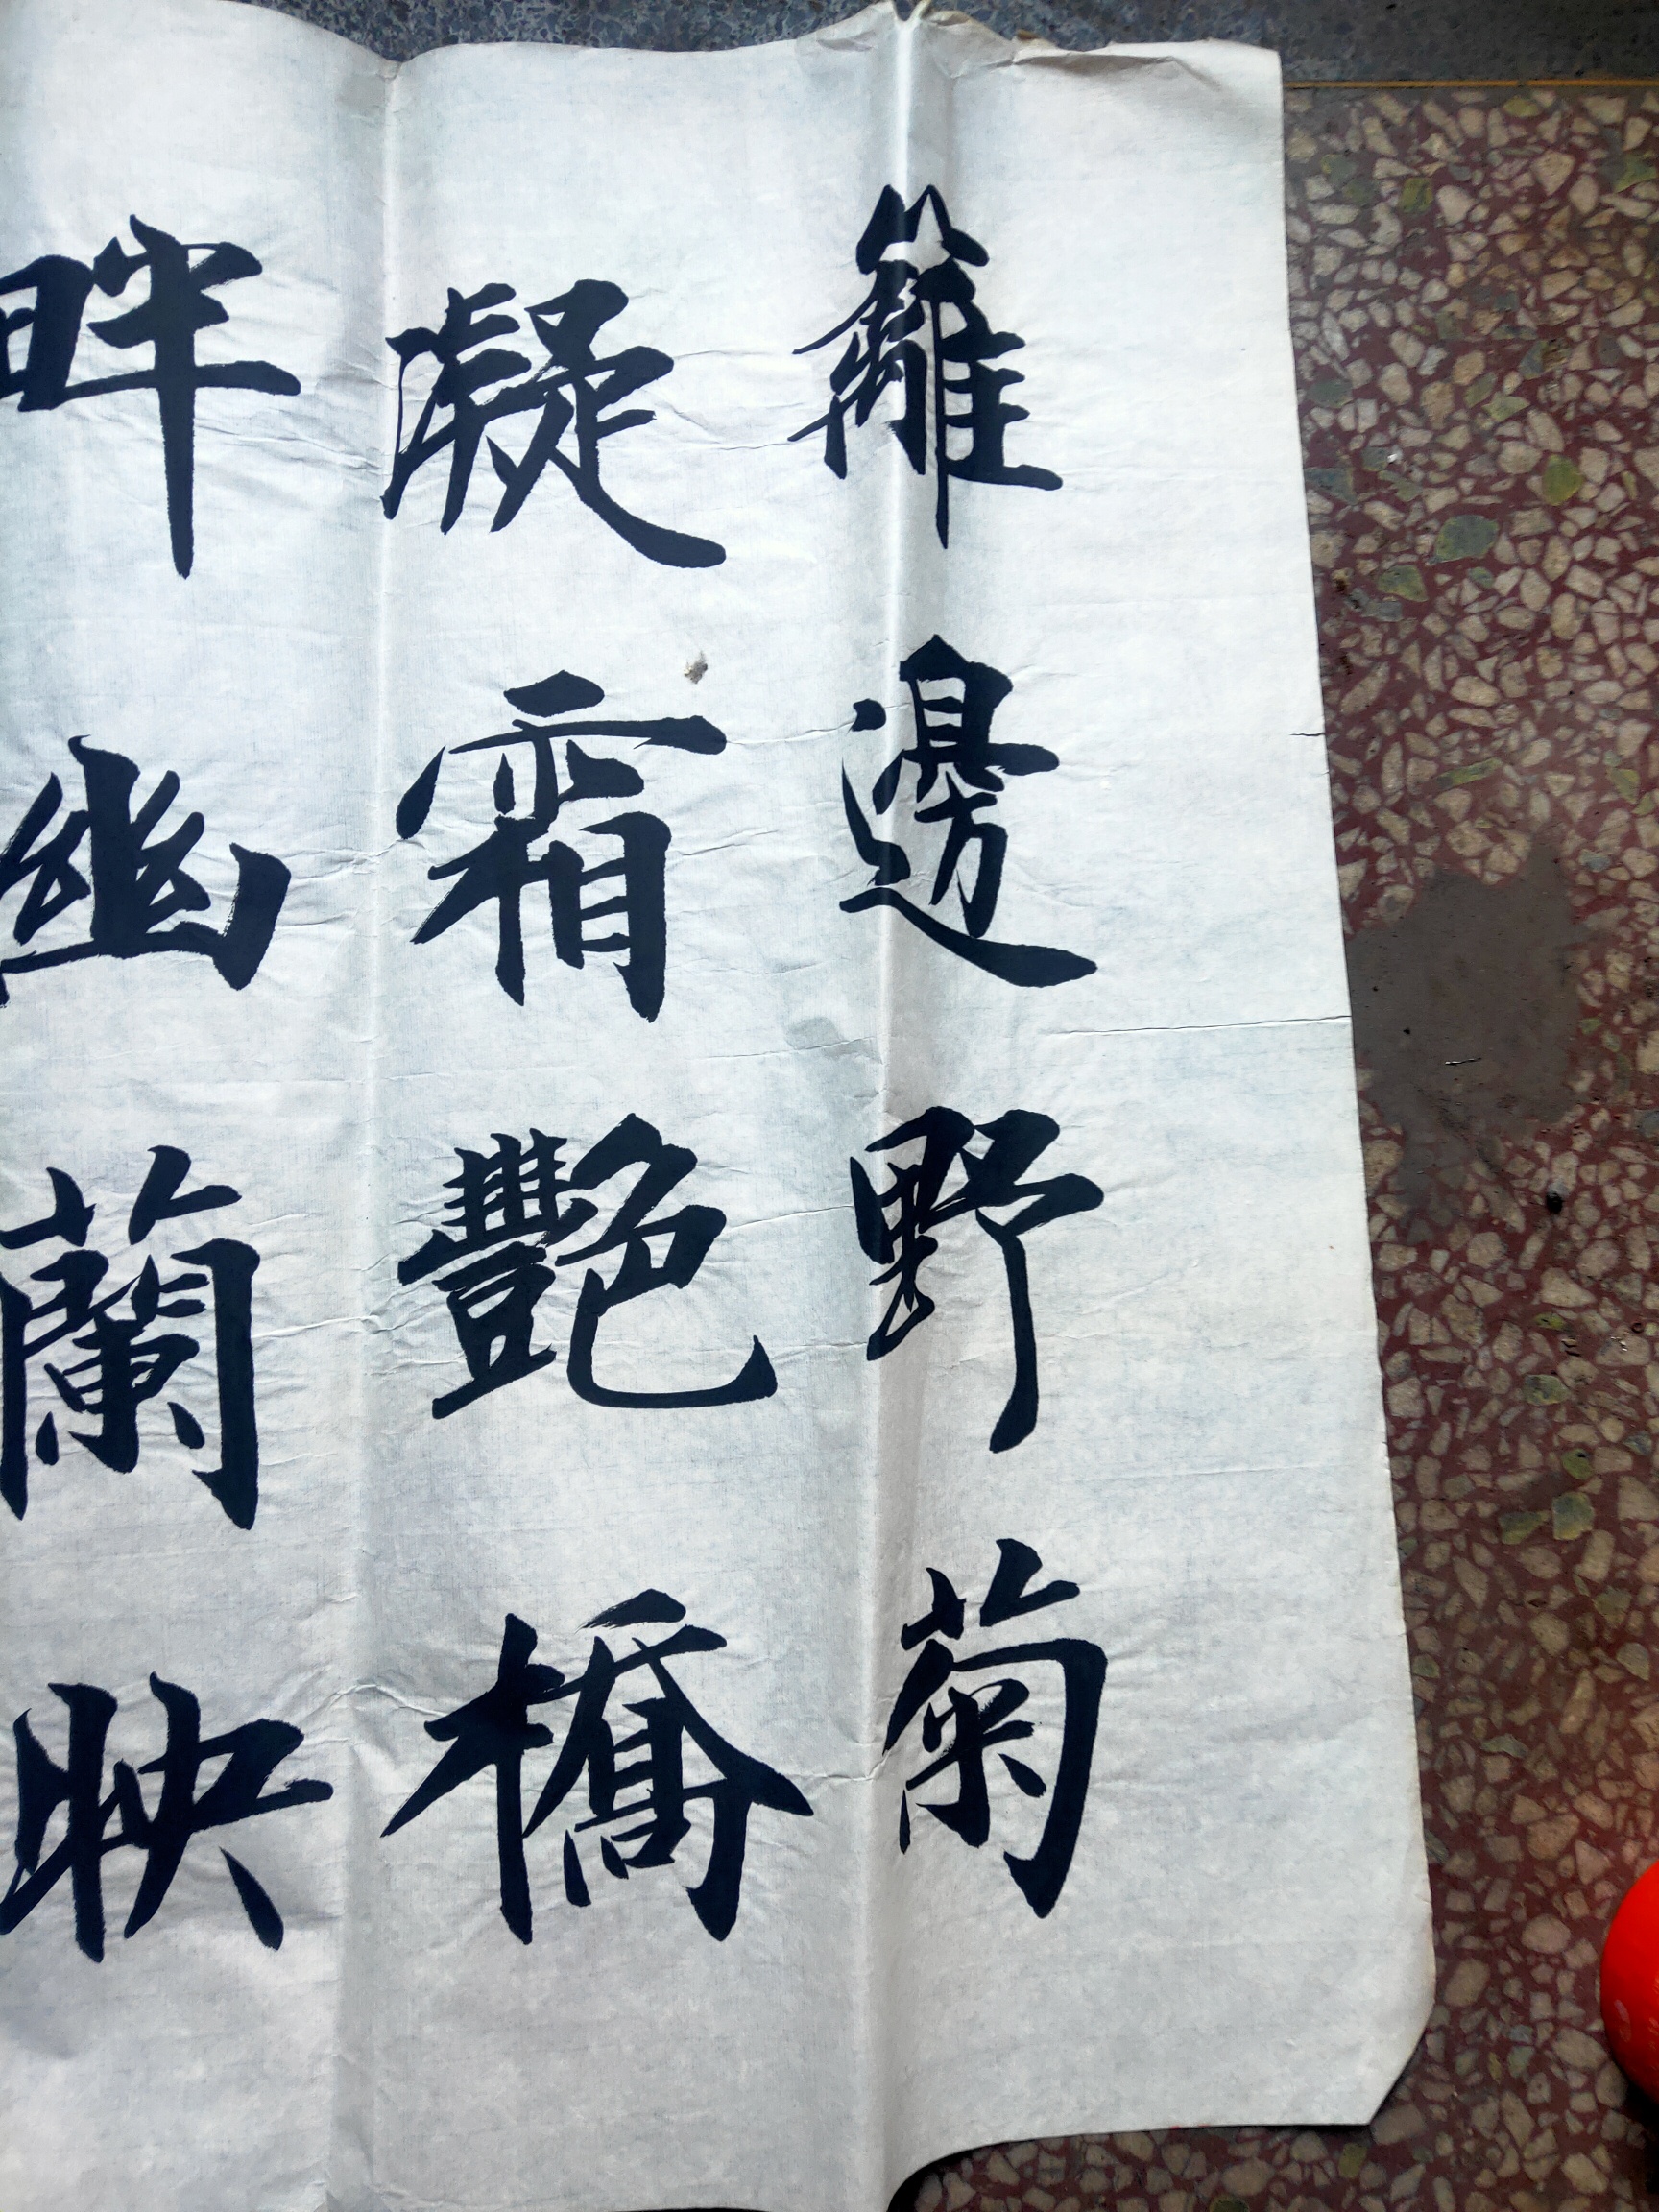 籬邊野菊
凝霜艷橋
畔幽蘭映